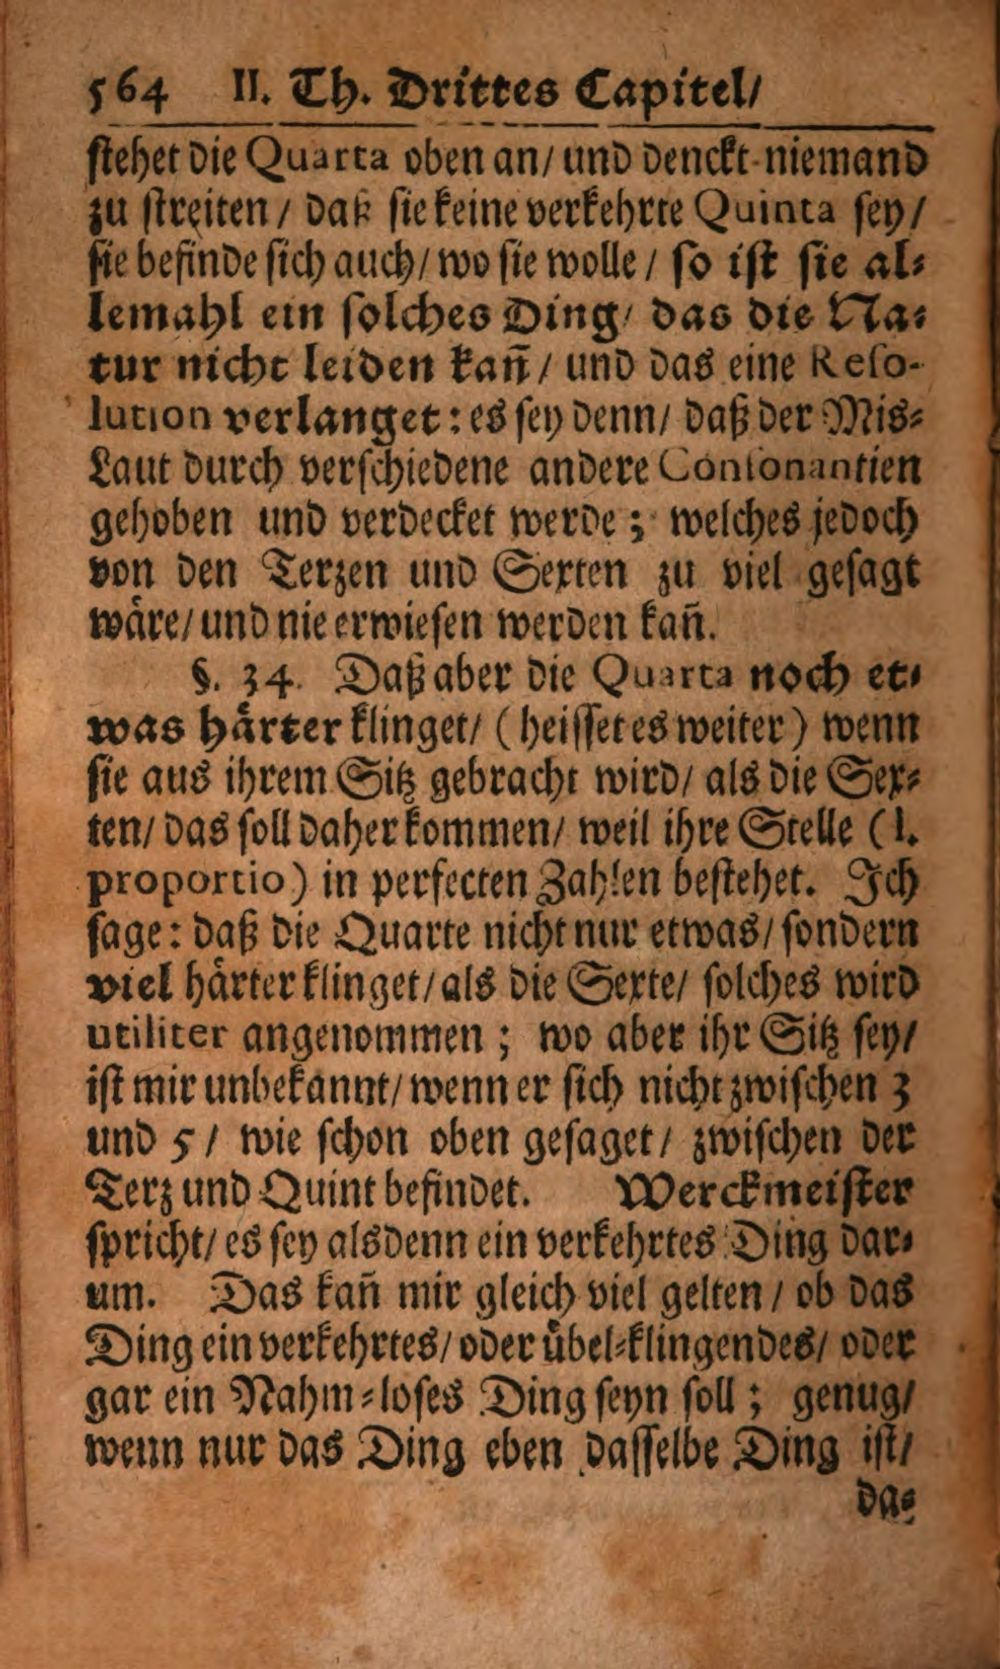 564 II. Th. Drittes Capitel/
stehet die Quarta oben an/ und denckt niemand
zu streiten / daß sie keine verkehrte Quinta sey/
sie befinde sich auch/ wo sie wolle / so ist sie al⸗
lemahl ein solches Ding/ das die Na⸗
tur nicht leiden kañ/ und das eine Reso-
lution verlanget: es sey denn/ daß der Mis⸗
Laut durch verschiedene andere Consonantien
gehoben und verdecket werde; welches jedoch
von den Terzen und Sexten zu viel gesagt
wäre/ und nie erwiesen werden kañ.
§. 34. Daß aber die Quarta noch et⸗
was härter klinget/ (heisset es weiter) wenn
sie aus ihrem Sitz gebracht wird/ als die Sex⸗
ten/ das soll daher kommen/ weil ihre Stelle (l.
proportio) in perfecten Zahlen bestehet. Ich
sage: daß die Quarte nicht nur etwas/ sondern
viel härter klinget/ als die Sexte/ solches wird
utiliter angenommen; wo aber ihr Sitz sey/
ist mir unbekannt/ wenn er sich nicht zwischen 3
und 5/ wie schon oben gesaget/ zwischen der
Terz und Quint befindet. Werckmeister
spricht/ es sey alsdenn ein verkehrtes Ding dar⸗
um. Das kañ mir gleich viel gelten / ob das
Ding ein verkehrtes/ oder übel⸗klingendes/ oder
gar ein Nahm⸗loses Ding seyn soll; genug/
wenn nur das Ding eben dasselbe Ding ist/
da⸗